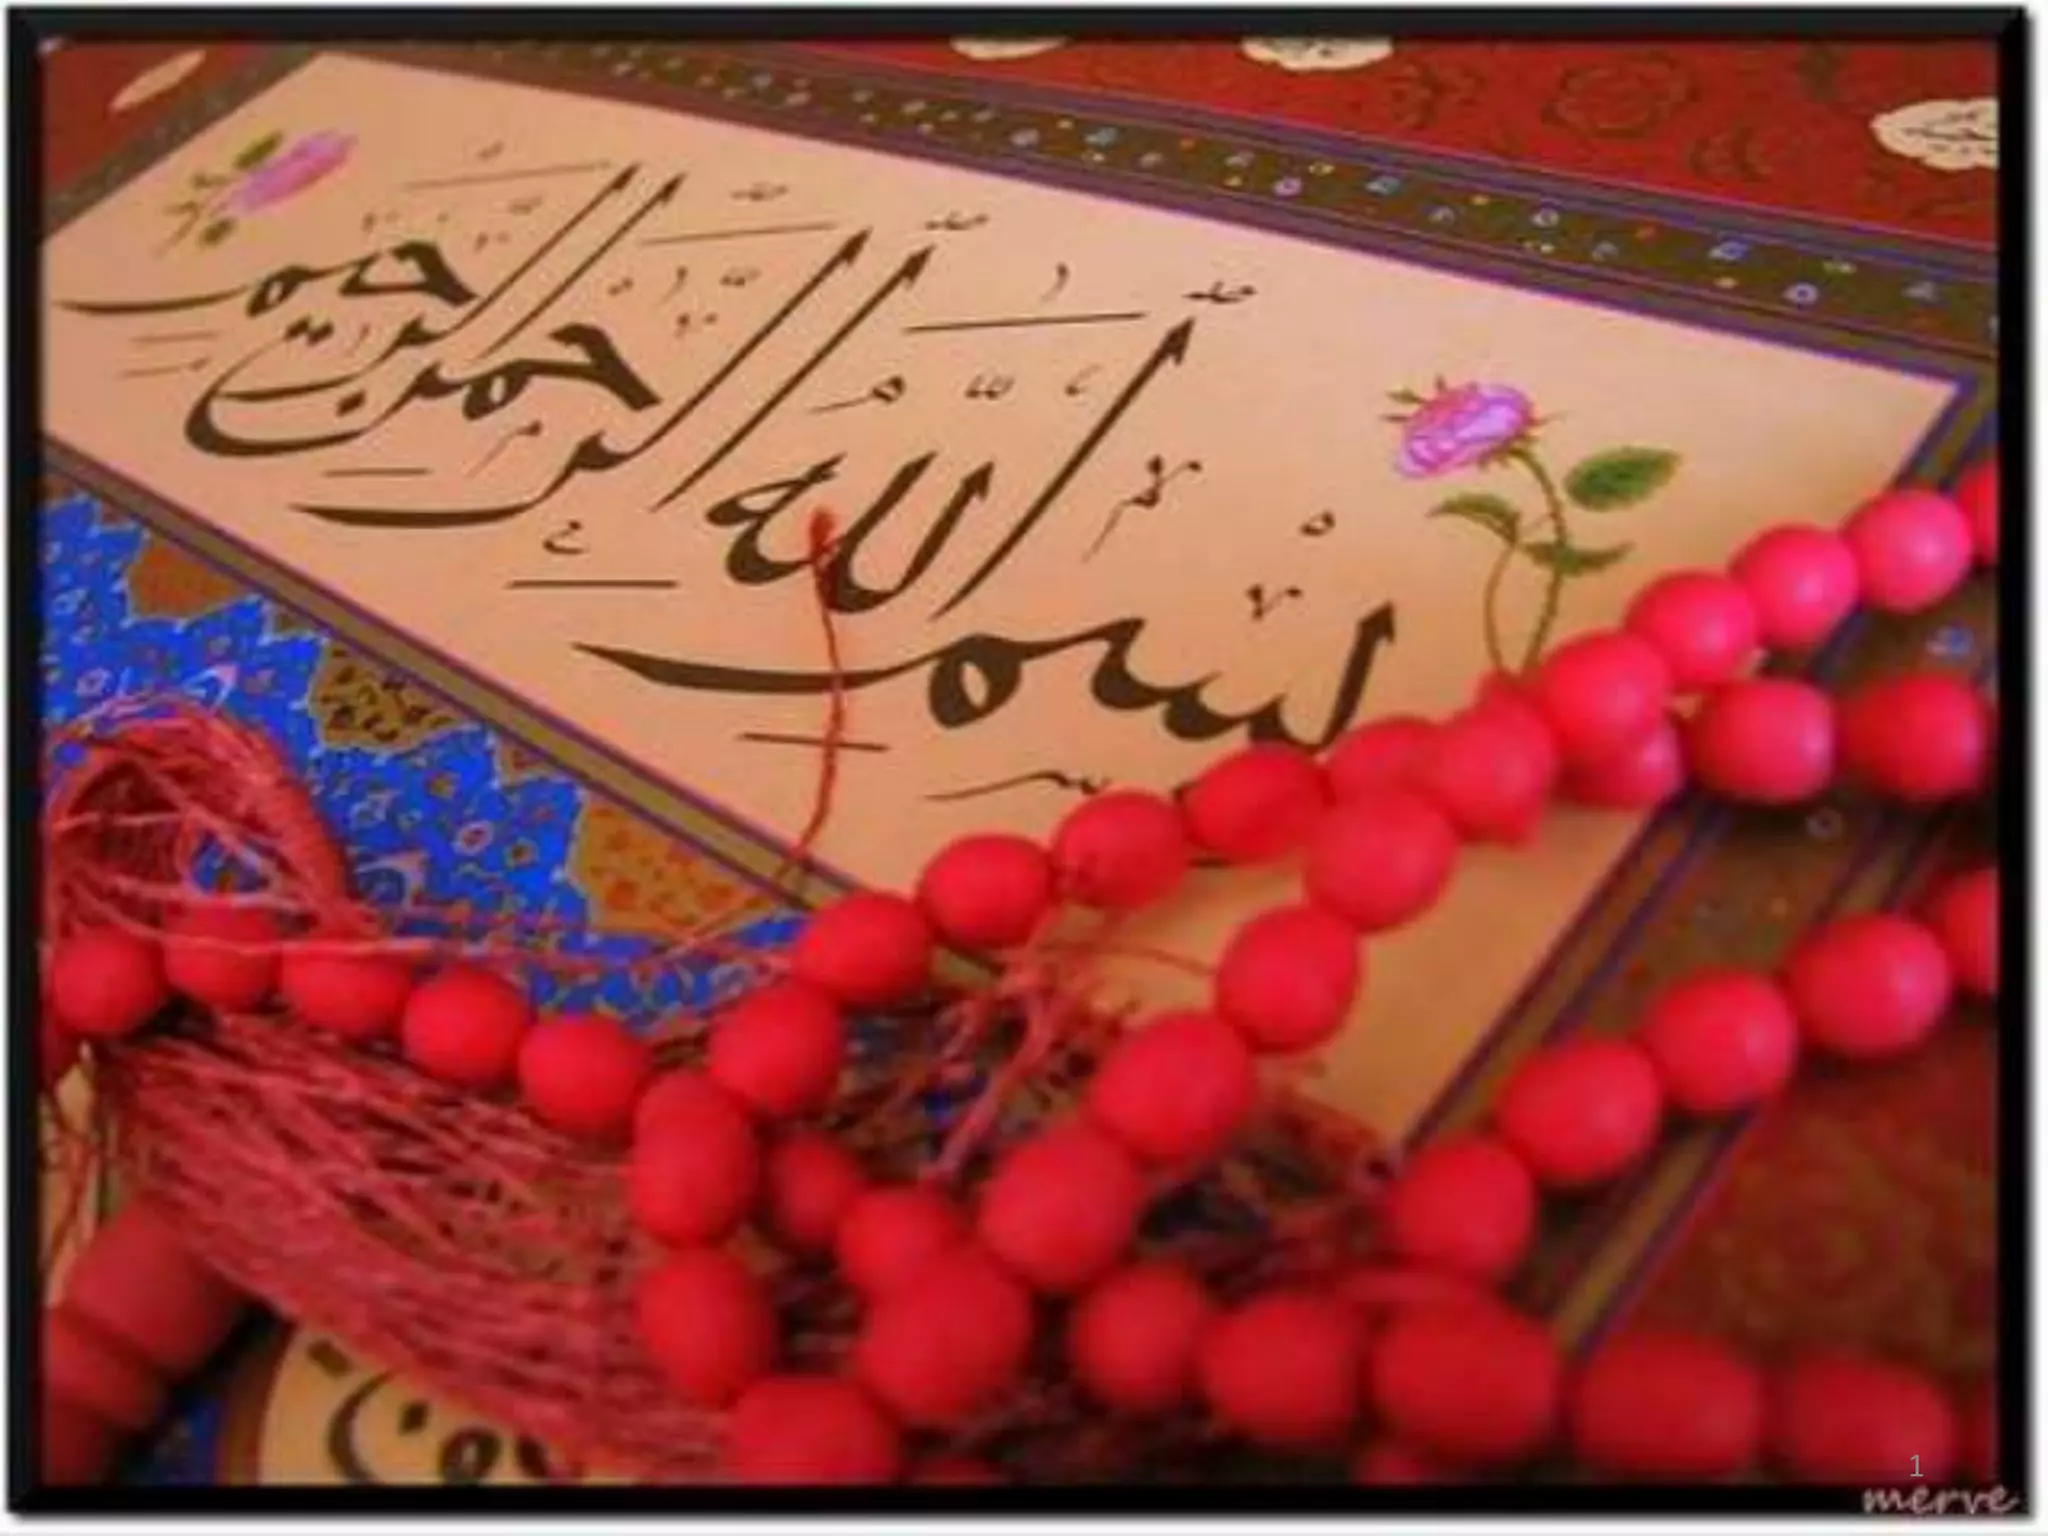 بسم الله الرحمن الرحیم
1
merve